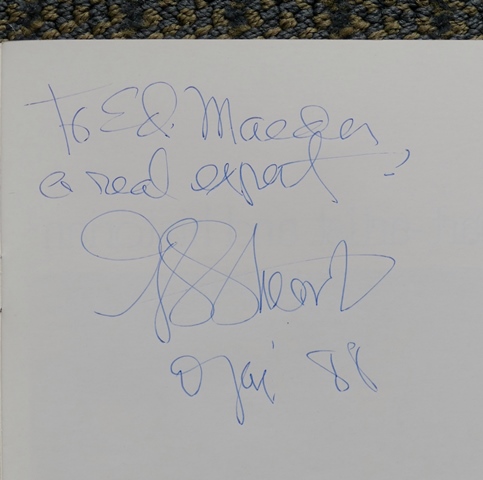 To Ed. Maeder
a real expert!
Ojai '88